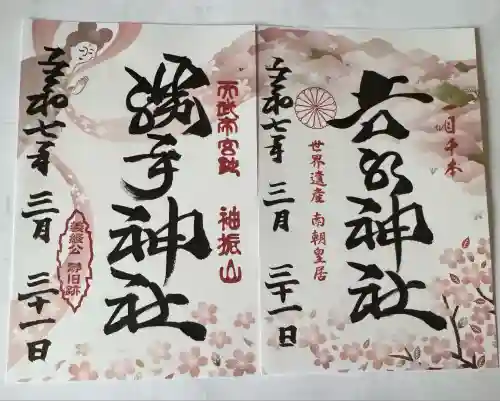 一目千本
吉水神社
世界遺産 南朝皇居
令和七年 三月 三十一日
天武帝宮趾 袖振山
勝手神社
義経公
静旧跡
令和七年 三月 三十一日